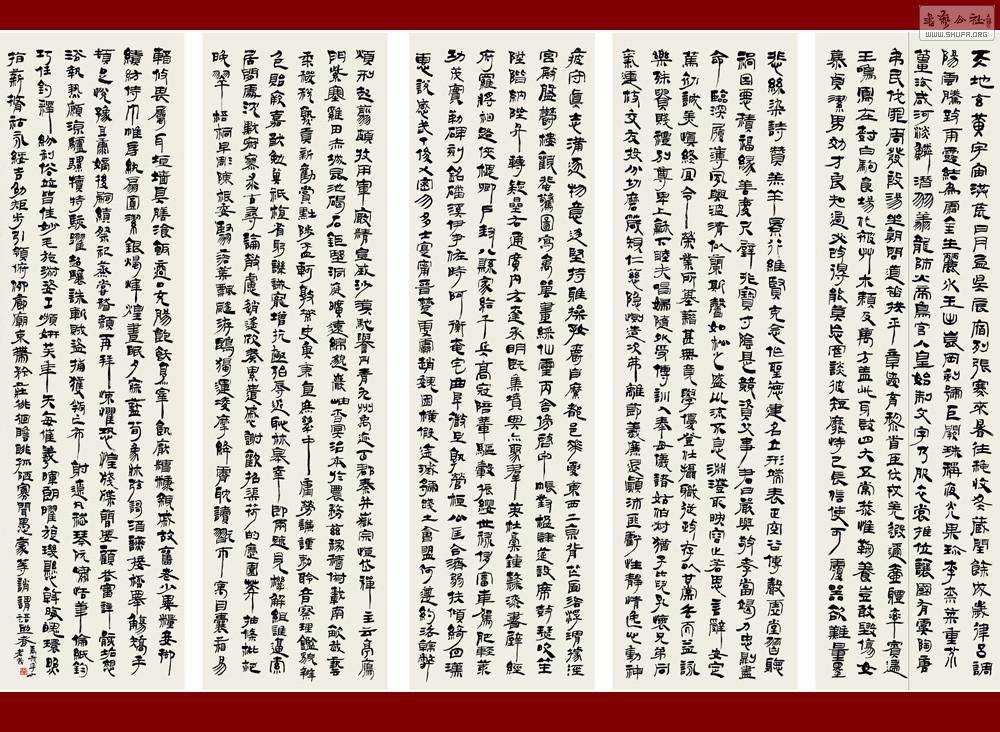 天地玄黃宇宙洪荒日月盈昃辰宿列張寒來暑往秋收冬藏閏餘成歲律呂調
陽雲騰致雨露結為霜金生麗水玉出崑岡劍號巨闕珠稱夜光果珍李柰菜重芥
薑海鹹河淡鱗潛羽翔龍師火帝鳥官人皇始制文字乃服衣裳推位讓國有虞陶唐
弔民伐罪周發殷湯坐朝問道垂拱平章愛育黎首臣伏戎羌遐邇壹體率賓歸
王鳴鳳在樹白駒食場化被草木賴及萬方蓋此身髮四大五常恭惟鞠養豈敢毀傷女
慕貞潔男效才良知過必改得能莫忘罔談彼短靡恃己長信使可覆器欲難量墨
悲絲染詩讚羔羊景行維賢克念作聖德建名立形端表正空谷傳聲虛堂習聽
禍因惡積福緣善慶尺璧非寶寸陰是競資父事君曰嚴與敬孝當竭力忠則盡
命臨深履薄夙興溫凊似蘭斯馨如松之盛川流不息淵澄取映容止若思言辭安定
篤初誠美慎終宜令榮業所基籍甚無竟學優登仕攝職從政存以甘棠去而益詠
樂殊貴賤禮別尊卑上和下睦夫唱婦隨外受傅訓入奉母儀諸姑伯叔猶子比兒孔懷兄弟同
氣連枝交友投分切磨箴規仁慈隱惻造次弗離節義廉退顛沛匪虧性靜情逸心動神
疲守真志滿逐物意移堅持雅操好爵自縻都邑華夏東西二京背芒面洛浮渭據涇
宮殿盤鬱樓觀飛驚圖寫禽獸畫綵仙靈丙舍傍啟甲帳對楹肆筵設席鼓瑟吹笙
陞階納陛弁轉疑星右通廣內左達承明既集墳典亦聚群英杜稾鍾隸漆書壁經
府羅將相路俠槐卿戶封八縣家給千兵高冠陪輦驅轂振纓世祿侈富車駕肥輕策
功茂實勒碑刻銘磻溪伊尹佐時阿衡奄宅曲阜微旦孰營桓公匡合濟弱扶傾綺回漢
惠說感武丁俊乂密勿多士寔甯晉楚更霸趙魏困橫假途滅虢踐土會盟何遵約法韓弊
煩刑起翦頗牧用軍最精宣威沙漠馳譽丹青九州禹迹百郡秦并嶽宗恒岱禪主云亭雁
門紫塞雞田赤城昆池碣石鉅野洞庭曠遠綿邈巖岫杳冥治本於農務茲稼穡俶載南畝我藝
黍稷稅熟貢新勸賞黜陟孟軻敦素史魚秉直庶幾中庸勞謙謹勑聆音察理鑑貌辨
色貽厥嘉猷勉其祗植省躬譏誡寵增抗極殆辱近恥林皋幸即兩疏見機解組誰逼索
居閒處沉默寂寥求古尋論散慮逍遙欣奏累遣慼謝歡招渠荷的歷園莽抽條枇杷
晚翠梧桐早凋陳根委翳落葉飄颻游鵾獨運凌摩絳霄耽讀翫市寓目囊箱易
輶攸畏屬耳垣墻具膳飡飯適口充腸飽飫烹宰飢厭糟糠親戚故舊老少異糧妾御
績紡侍巾帷房紈扇圓潔銀燭煒煌晝眠夕寐藍筍象牀絃歌酒讌接杯舉觴矯手
頓足悅豫且康嫡後嗣續祭祀烝嘗稽顙再拜悚懼恐惶牋牒簡要顧答審詳骸垢想
浴執熱願涼驢騾犢特駭躍超驤誅斬賊盜捕獲叛亡布射遼丸嵇琴阮嘯恬筆倫紙鈞
巧任釣釋紛利俗並皆佳妙毛施淑姿工顰妍笑年矢每催羲暉朗曜旋璣懸斡晦魄環照
指薪修祜永綏吉劭矩步引領俯仰廊廟束帶矜莊徘徊瞻眺孤陋寡聞愚蒙等誚謂語助者焉哉乎也
WWW.SHUFA.ORG